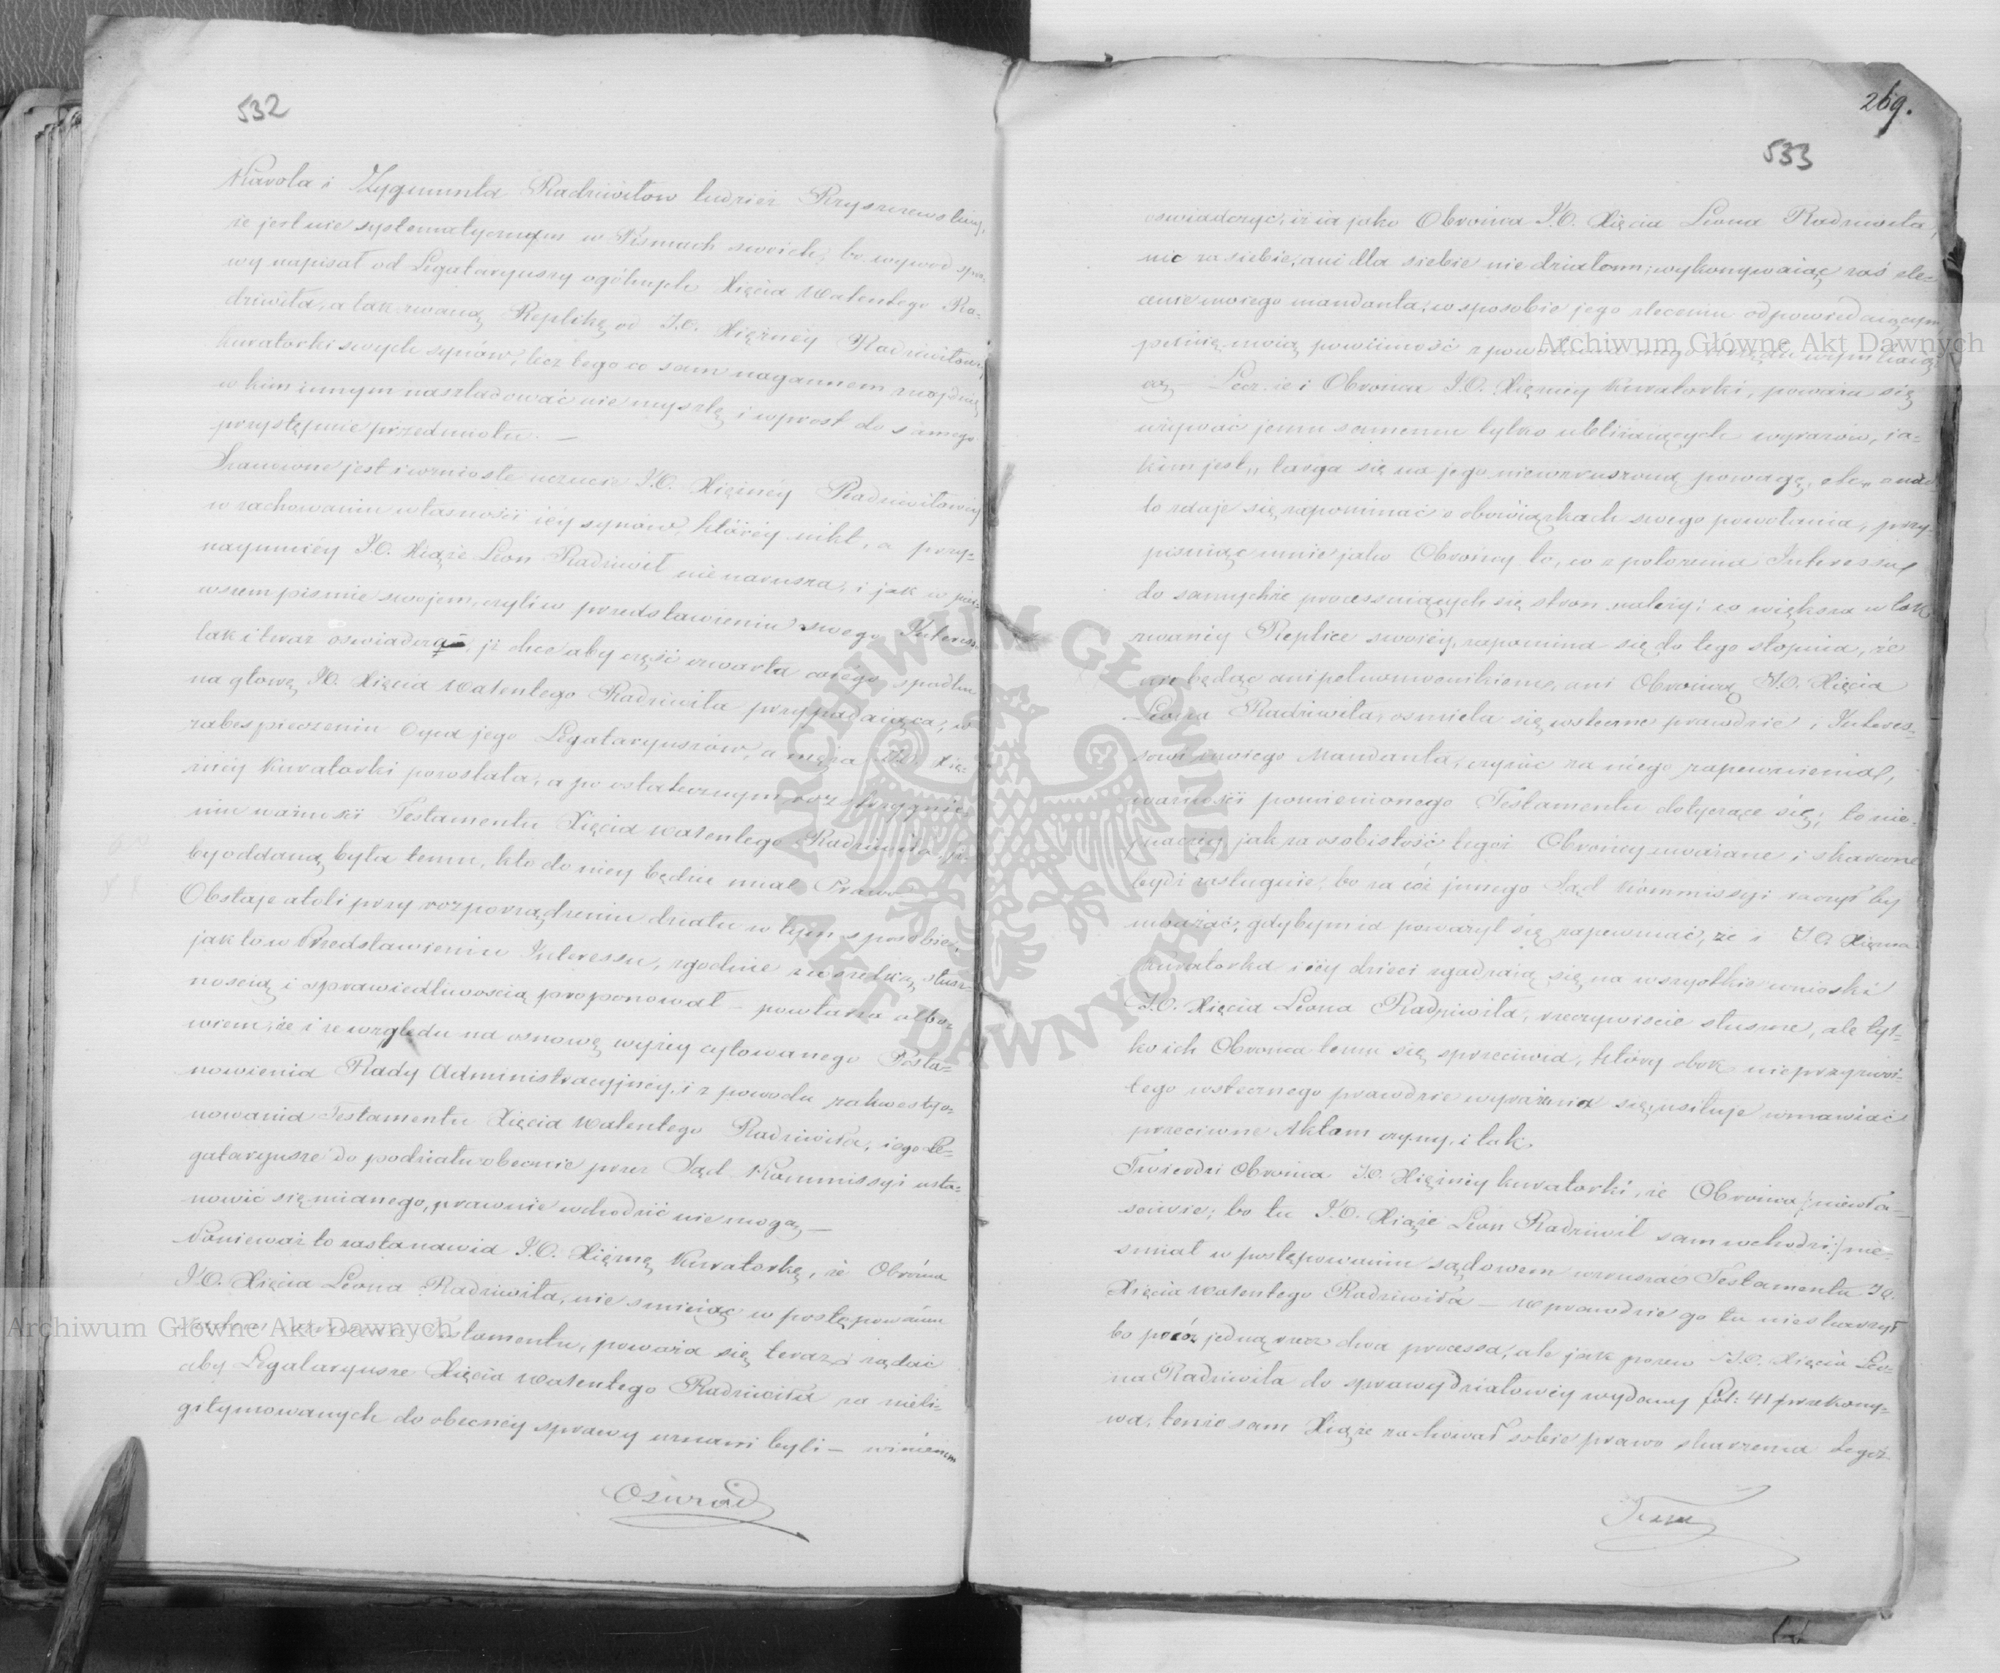 532
Karola i Zygmunta Radziwiłow tudzież Kryszczewskiey,
że jest nie systematycznym w Pismach swoich, bo wywod spra
wy napisał od Legataryuszy ogólnych Xięcia Walentego Ra-
dziwiła, a tak zwaną Replikę od J.O. Xiężnéy Radziwiłowéy
kuratorki swych synów, lecz tego co sam nagannem znayduię
w kim innym naszladować nie myszlę, i wprost do samego
przystępuie przedmiotu. —
Szanowne jest i wzniosłe uczucie J.O. Xiężnéy Radziwiłowéy
w zachowaniu własności iéy synów, któréy nikt, a przy-
naymniéy J.O. Xiąże Leon Radziwił nie narusza, i jak w pier
wszem pismie swojem, czyli w przedstawieniu swego Interessu
tak i teraz oswiadcza, jż chce aby część czwarta całego spadku
na głowę JO. Xięcia Walentego Radziwiła przypadaiąca, w
zabespieczeniu Oyca jego Legataryuszów, a męża JO. Xię-
żnéy Kuratorki pozostała, a po ostatecznym rozstrzygnie
niu ważności Testamentu Xięcia Walentego Radziwiła, iż
by oddaną była temu, kto do niey będzie miał Prawo
Obstaje atoli przy rozporządzeniu działu w tym sposobie,
jak to w Przedstawieniu Interessu, zgodnie z wszelką słusz-
nością i sprawiedliwością proponował — powtarza albo-
wiem, że i ze względu na osnowę wyżey cytowanego Posta-
nowienia Rady Administracyjnéy, i z powodu zakwestyo-
nowania Testamentu Xięcia Walentego Radziwiła, iego Le-
gataryusze do podziału obecnie przez Sąd Kommissyi usta-
nowić się mianego, prawnie wchodzić nie mogą —
Ponieważ to zastanawia J.O. Xiężnę Kuratorkę, że Obrońca
J.O. Xięcia Leona Radziwiła, nie smieiąc w postępowaniu
sądowem wzruszać Testamentu, poważa się teraz żądać
aby Legataryusze Xięcia Walentego Radziwiła za nieli-
gitymowanych do obecnéy sprawy uznani byli — winienem
Oswiad
269.
533
oswiadczyć, iż ia jako Obrońca J.O. Xięcia Leona Radziwiła,
nic za siebie, ani dla siebie nie działam; wykonywaiąc zaś zle-
cenie moiego mandanta, w sposobie jego zleceniu odpowiedaiącym,
pełnię moią powinność z powołania mego
cą — Lecz że i Obrońca J.O. Xiężnéy Kuratorki, poważa się
używać jemu samemu tylko ubliżaiących wyrazów, ia-
kim jest „ targa się na jego niewzruszoną powagę, etc. a nad
to zdaje się zapominać o obowiązkach swego powołania, przy-
pisuiąc mnie jako Obrońcy to, co z położenia Interessu
do samychże processuiących się stron należy; co większa w tak
zwanéy Replice swoiéy, zapomina się do tego stopnia, że
nie będąc ani pełnomocnikiem, ani Obrońcą J.O. Xięcia
Leona Radziwiła, osmiela się wsteczne prawdzie i Interes-
sowi moiego Mandanta, czynić za niego zapewnienia,
ważności pomienionego Testamentu dotyczące się; to nie
inaczéy jak za osobistość tegoż Obrońcy uważane i skarcone
bydź zasługuie, bo za cóż innego Sąd Kommissyi raczył by
uważać, gdybym ia poważył się zapewniać, że i J.O. Xiężna
Kuratorka i iéy dzieci zgadzaią się na wszystkie wnioski
J.O. Xięcia Leona Radziwiła, rzeczywiscie słuszne, ale tyl-
ko ich Obrońca temu się sprzeciwia, który obok nieprzyzwoi-
tego wstecznego prawdzie wyrażenia się, usiłuje wmawiać
przeciwne Aktom czyny, i tak
Twierdzi Obrońca J.O. Xiężnéy Kuratorki, że Obrońca /: niewła-
sciwie; bo tu J.O. Xiąże Leon Radziwił sam wchodzi :/ nie-
smiał w postępowaniu sądowem wzruszać Testamentu JO.
Xięcia Walentego Radziwiła — w prawdzie go tu nieskarżył
bo przez jedną rzecz dwa processa, ale jak pozew J.O. Xięcia Leo-
na Radziwiła do sprawy działowéy wydany fol: 41 przekony-
wa, tenże sam Xiąże zachował sobie prawo skarżenia tegoż
Testa